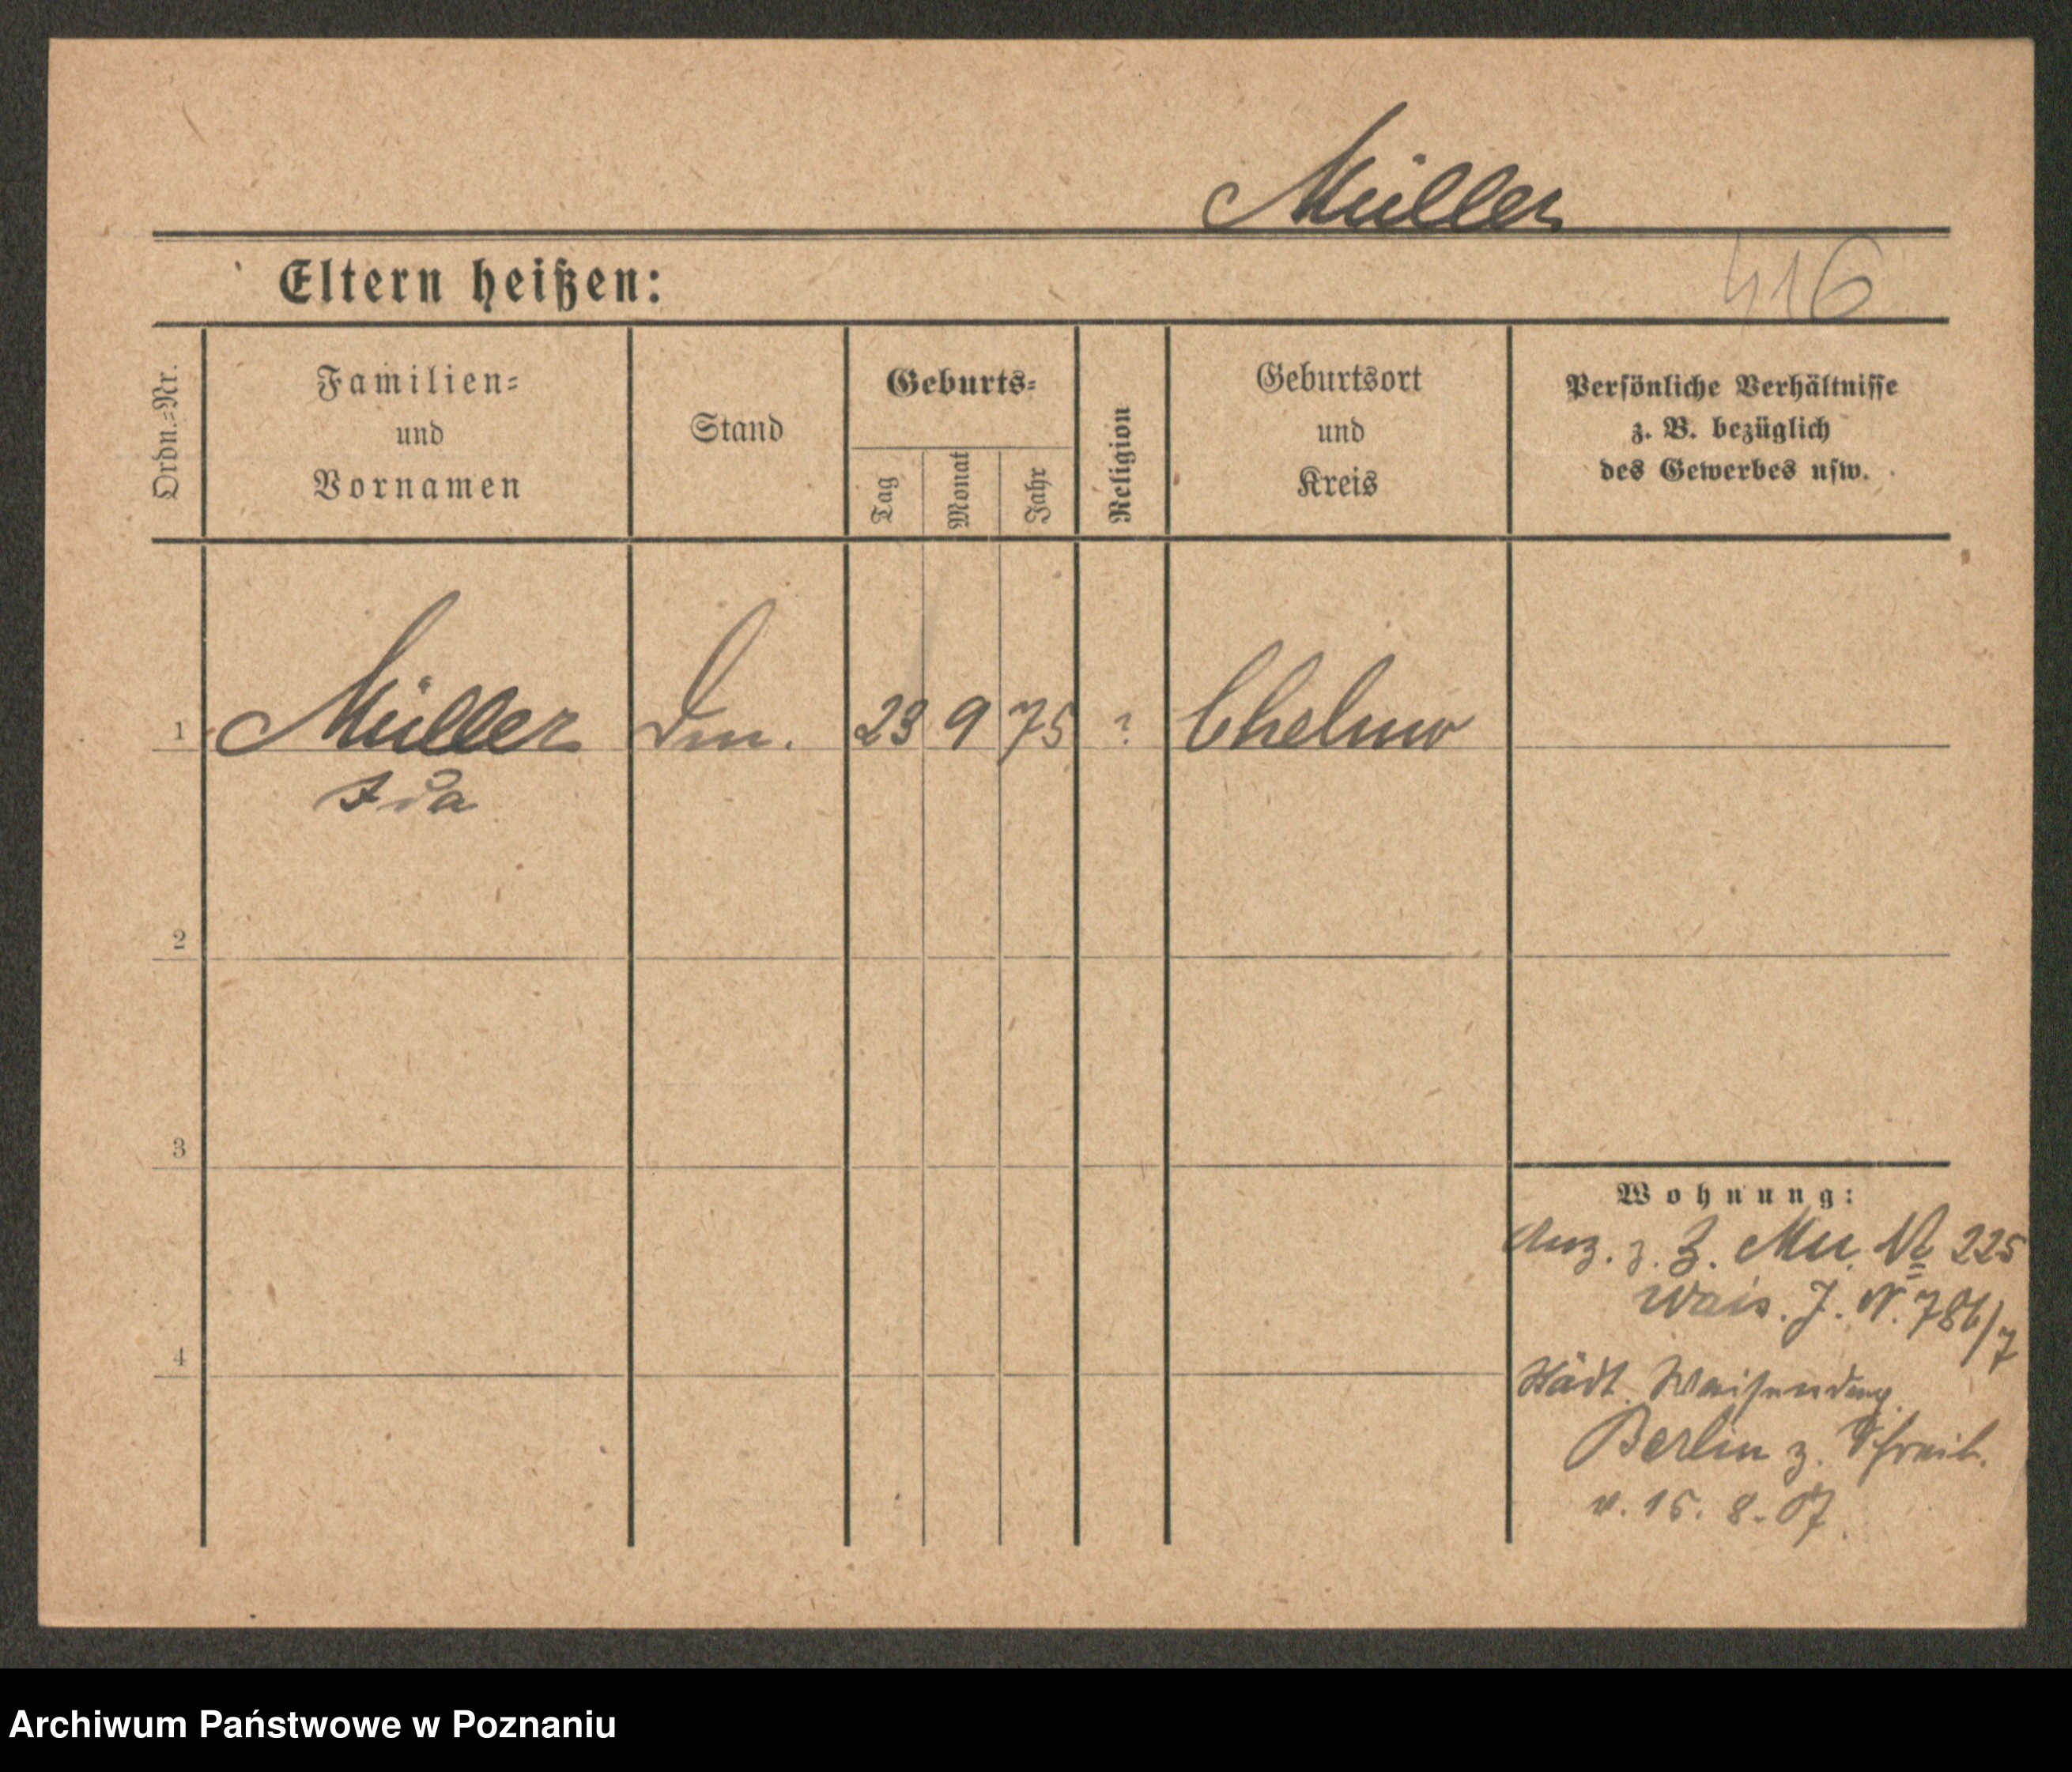 Müller
Eltern heißen:
416
Ordn.=Nr.
Familien=
und
Vornamen
Stand
Geburts=
Tag
Monat
Jahr
Religion
Geburtsort
und
Kreis
Persönliche Verhältnisse
z. B. bezüglich
des Gewerbes usw.
1 Müller 23 9 75 ? Chelmo
Ida
2
3
Wohnung:
Anz. z. Z. Mü. № 225
Wais. J. N. 786/7
4
Städt. Waisendep.
Berlin z. Schreib.
v. 15. 8. 07.
Archiwum Państwowe w Poznaniu